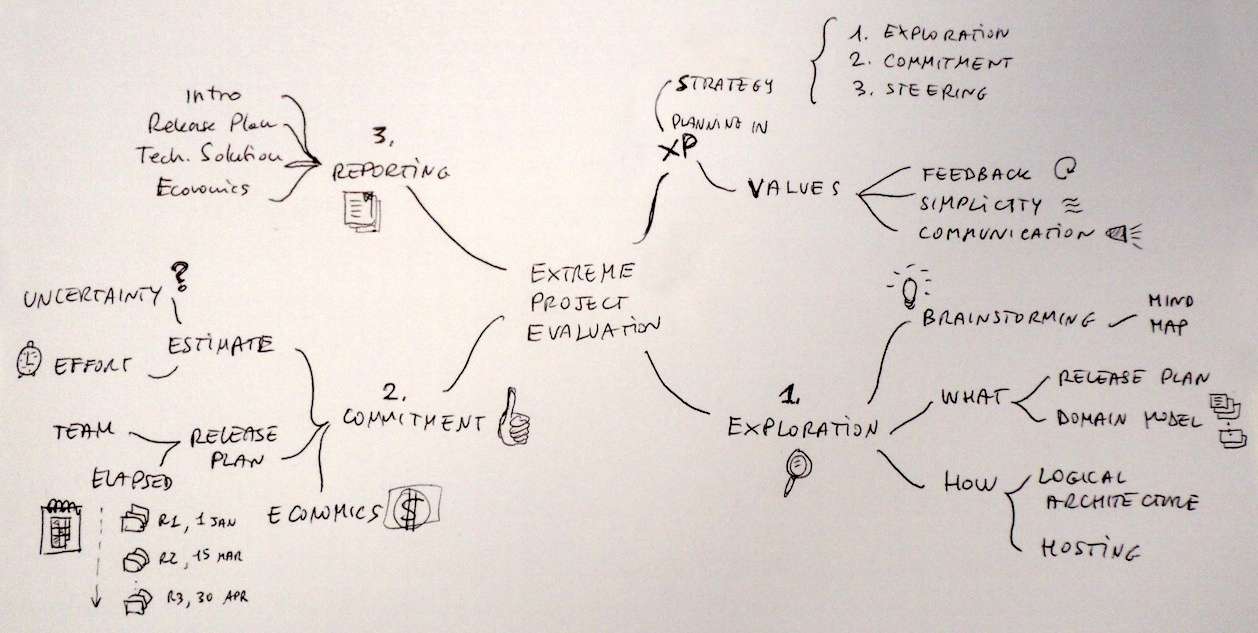 EXTREME
PROJECT
EVALUATION
PLANNING IN
XP
STRATEGY
1. EXPLORATION
2. COMMITMENT
3. STEERING
VALUES
FEEDBACK
SIMPLICITY
COMMUNICATION
1.
EXPLORATION
BRAINSTORMING
MIND
MAP
WHAT
RELEASE PLAN
DOMAIN MODEL
HOW
LOGICAL
ARCHITECTURE
HOSTING
2.
COMMITMENT
ESTIMATE
UNCERTAINTY ?
EFFORT
RELEASE
PLAN
TEAM
ELAPSED
R1, 1 JAN
R2, 15 MAR
R3, 30 APR
ECONOMICS $
3.
REPORTING
Intro
Release Plan
Tech. Solution
Economics